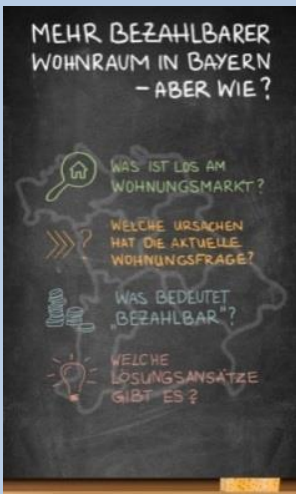 MEHR BEZAHLBARER
WOHNRAUM IN BAYERN
– ABER WIE?
WAS IST LOS AM
WOHNUNGSMARKT?
WELCHE URSACHEN
HAT DIE AKTUELLE
WOHNUNGSFRAGE?
WAS BEDEUTET
„BEZAHLBAR"?
WELCHE
LÖSUNGSANSÄTZE
GIBT ES?